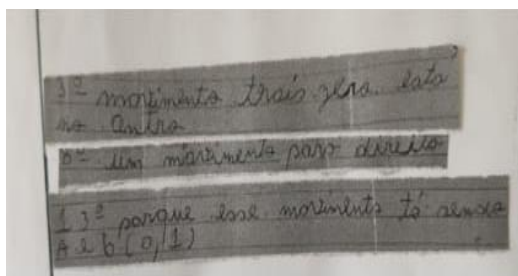 3º movimento trais zera esta
no antro
8º um movimento para direito
13º porque esse movimento tá sendo
A e b (0,1)